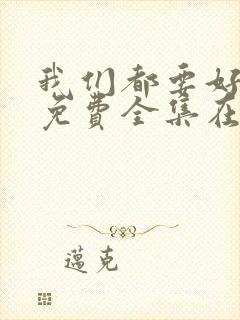 我们都要好
免费全集在
邁克